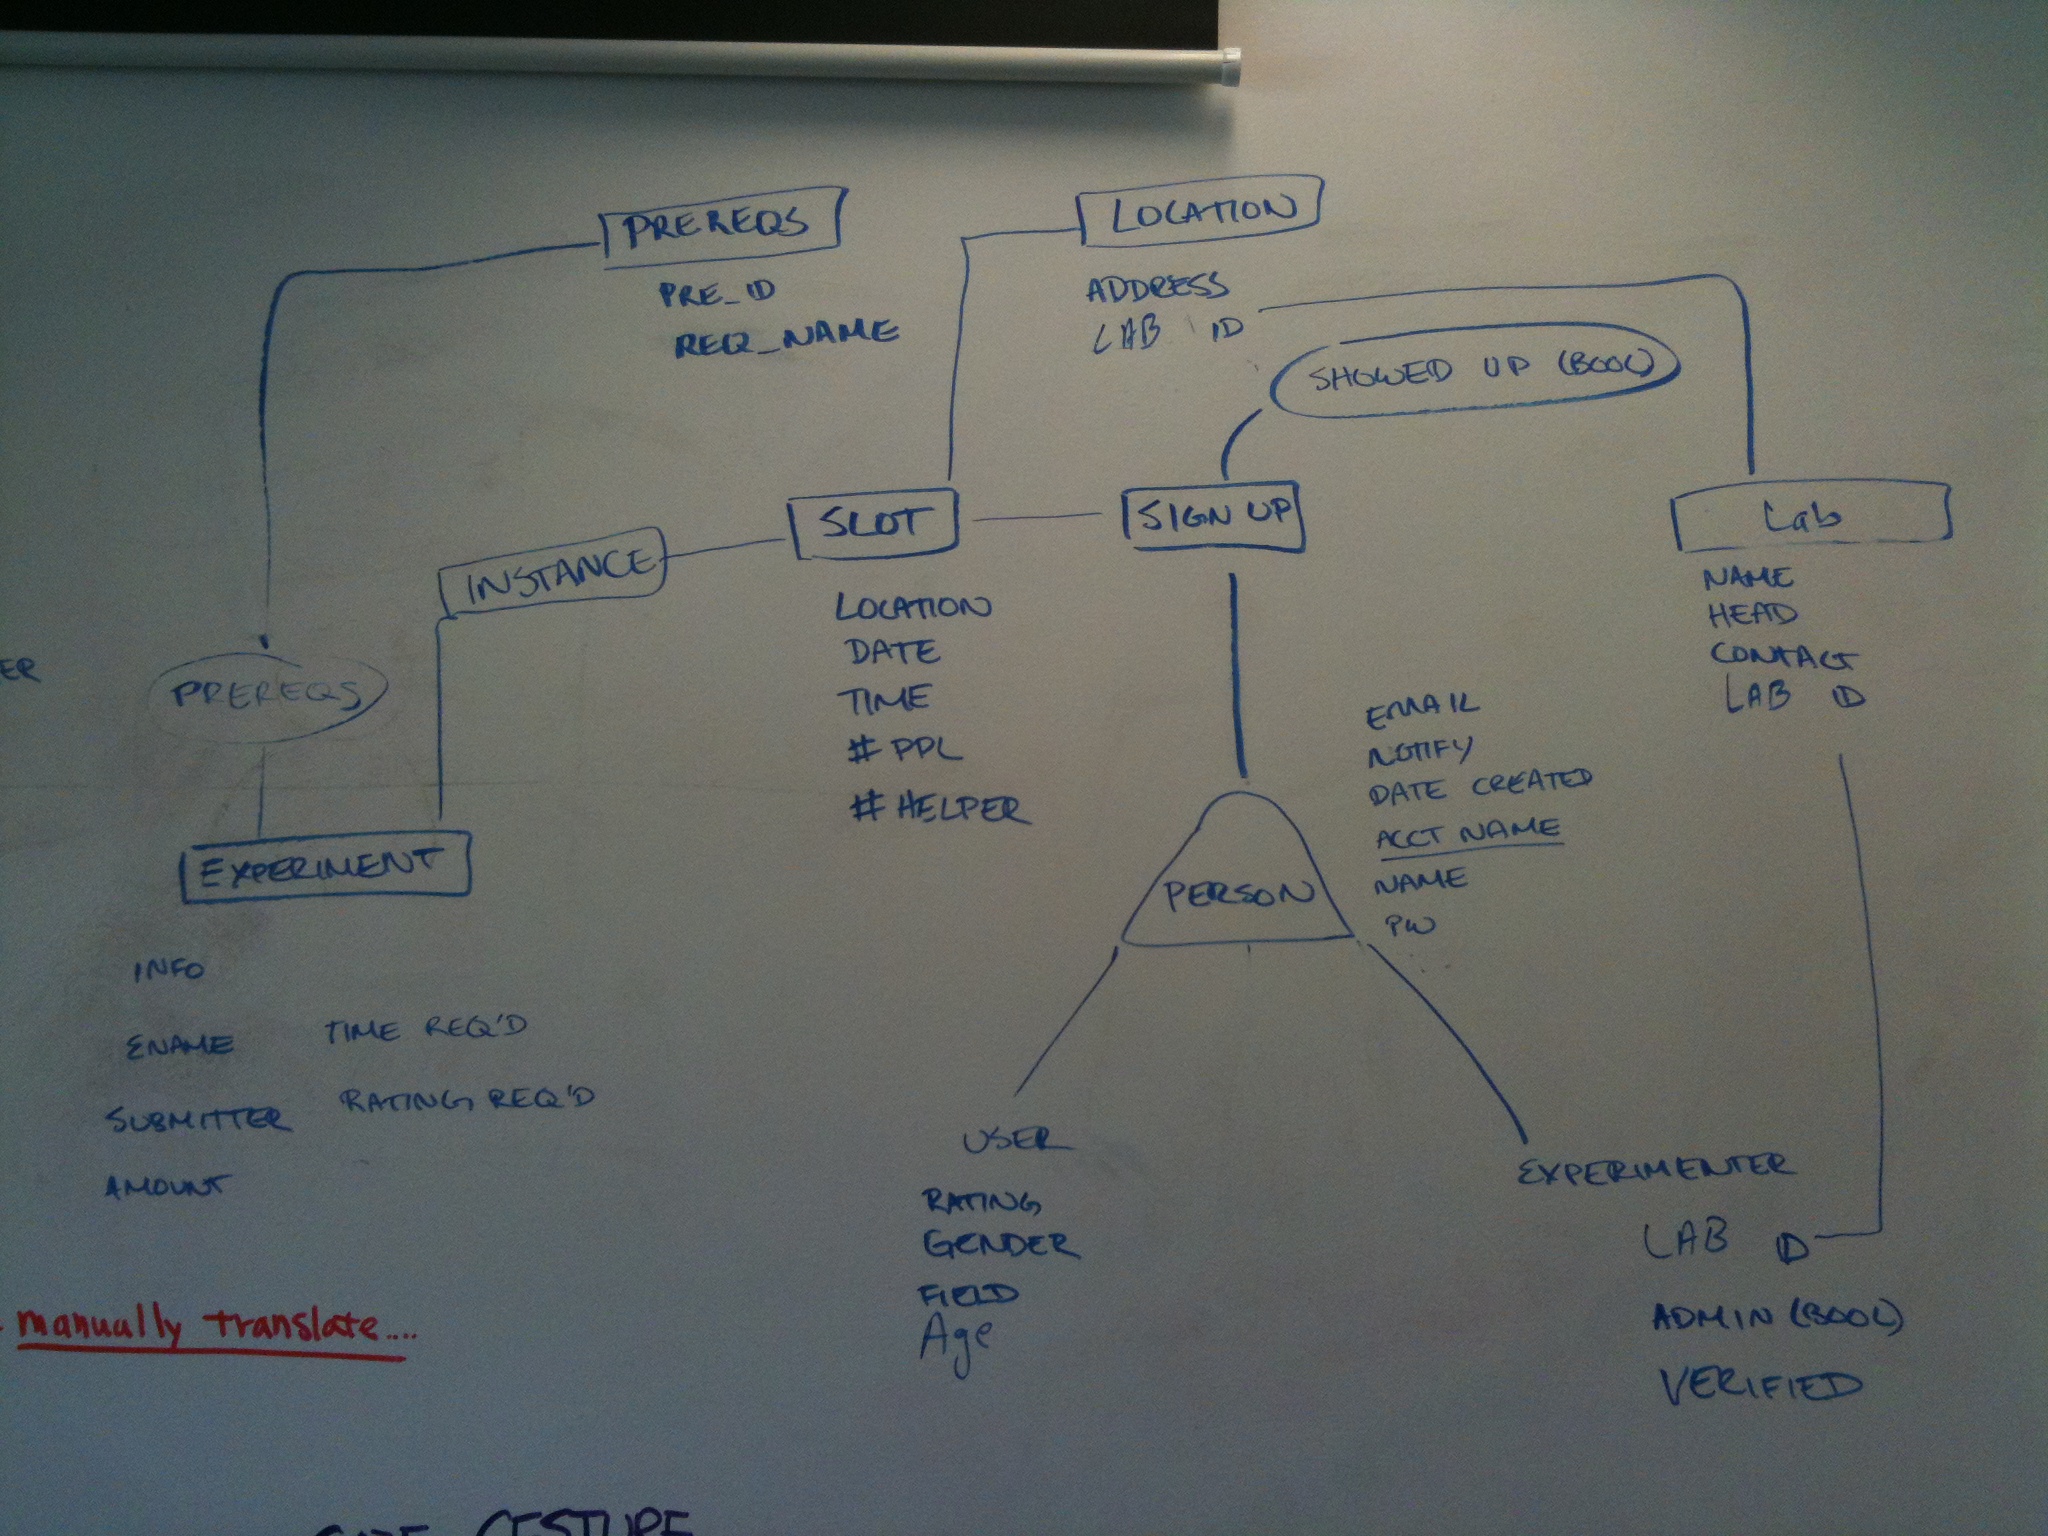 PREREQS
PRE_ID
REQ_NAME
LOCATION
ADDRESS
LAB ID
SHOWED UP (BOOL)
INSTANCE
SLOT
LOCATION
DATE
TIME
# PPL
# HELPER
SIGN UP
Lab
NAME
HEAD
CONTACT
LAB ID
ER
PREREQS
EXPERIMENT
INFO
ENAME
TIME REQ'D
SUBMITTER
RATING REQ'D
AMOUNT
PERSON
EMAIL
NOTIFY
DATE CREATED
ACCT NAME
NAME
PW
USER
RATING
GENDER
FIELD
Age
EXPERIMENTER
LAB ID
ADMIN (BOOL)
VERIFIED
manually translate....
GESTURE